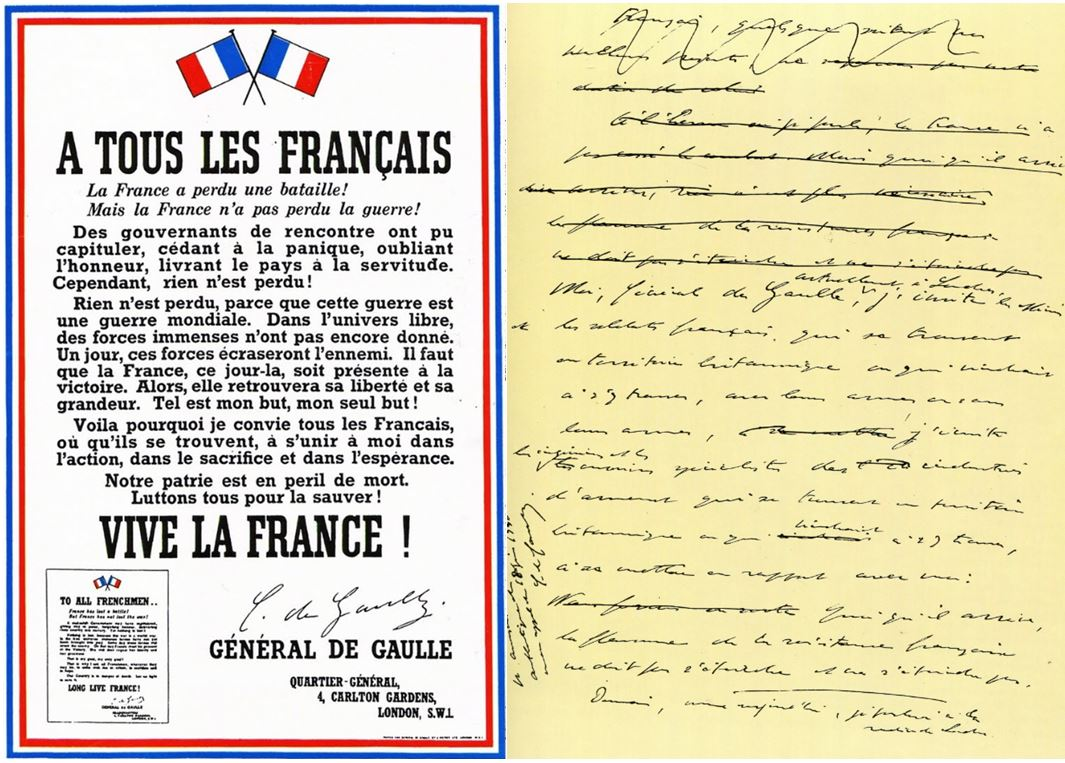 A TOUS LES FRANÇAIS
La France a perdu une bataille!
Mais la France n'a pas perdu la guerre!
Des gouvernants de rencontre ont pu
capituler, cédant à la panique, oubliant
l'honneur, livrant le pays à la servitude.
Cependant, rien n'est perdu!
Rien n'est perdu, parce que cette guerre est
une guerre mondiale. Dans l'univers libre,
des forces immenses n'ont pas encore donné.
Un jour, ces forces écraseront l'ennemi. Il faut
que la France, ce jour-la, soit présente à la
victoire. Alors, elle retrouvera sa liberté et sa
grandeur. Tel est mon but, mon seul but!
Voila pourquoi je convie tous les Francais,
où qu'ils se trouvent, à s'unir à moi dans
l'action, dans le sacrifice et dans l'espérance.
Notre patrie est en peril de mort.
Luttons tous pour la sauver!
VIVE LA FRANCE !
C. de Gaulle.
GÉNÉRAL DE GAULLE
QUARTIER-GÉNÉRAL,
4, CARLTON GARDENS,
LONDON, S.W.1
TO ALL FRENCHMEN..
France has lost a battle!
But France has not lost the war!
LONG LIVE FRANCE!
GÉNÉRAL DE GAULLE
la France n'a
Mais quoi qu'il arrive
la flamme de la résistance française
ne doit pas s'éteindre et ne s'éteindra pas
actuellement à Londres,
Moi, Général de Gaulle, j'invite les officiers
et les soldats français, qui se trouvent
en territoire britannique ou qui viendraient
à s'y trouver, avec leurs armes ou sans
leurs armes, j'invite
les ingénieurs et les
ouvriers spécialistes des industries
d'armement qui se trouvent en territoire
britannique ou qui viendraient à s'y trouver,
à se mettre en rapport avec moi.
Quoi qu'il arrive,
la flamme de la résistance française
ne doit pas s'éteindre et ne s'éteindra pas.
Demain, comme aujourd'hui, je parlerai à la
radio de Londres.